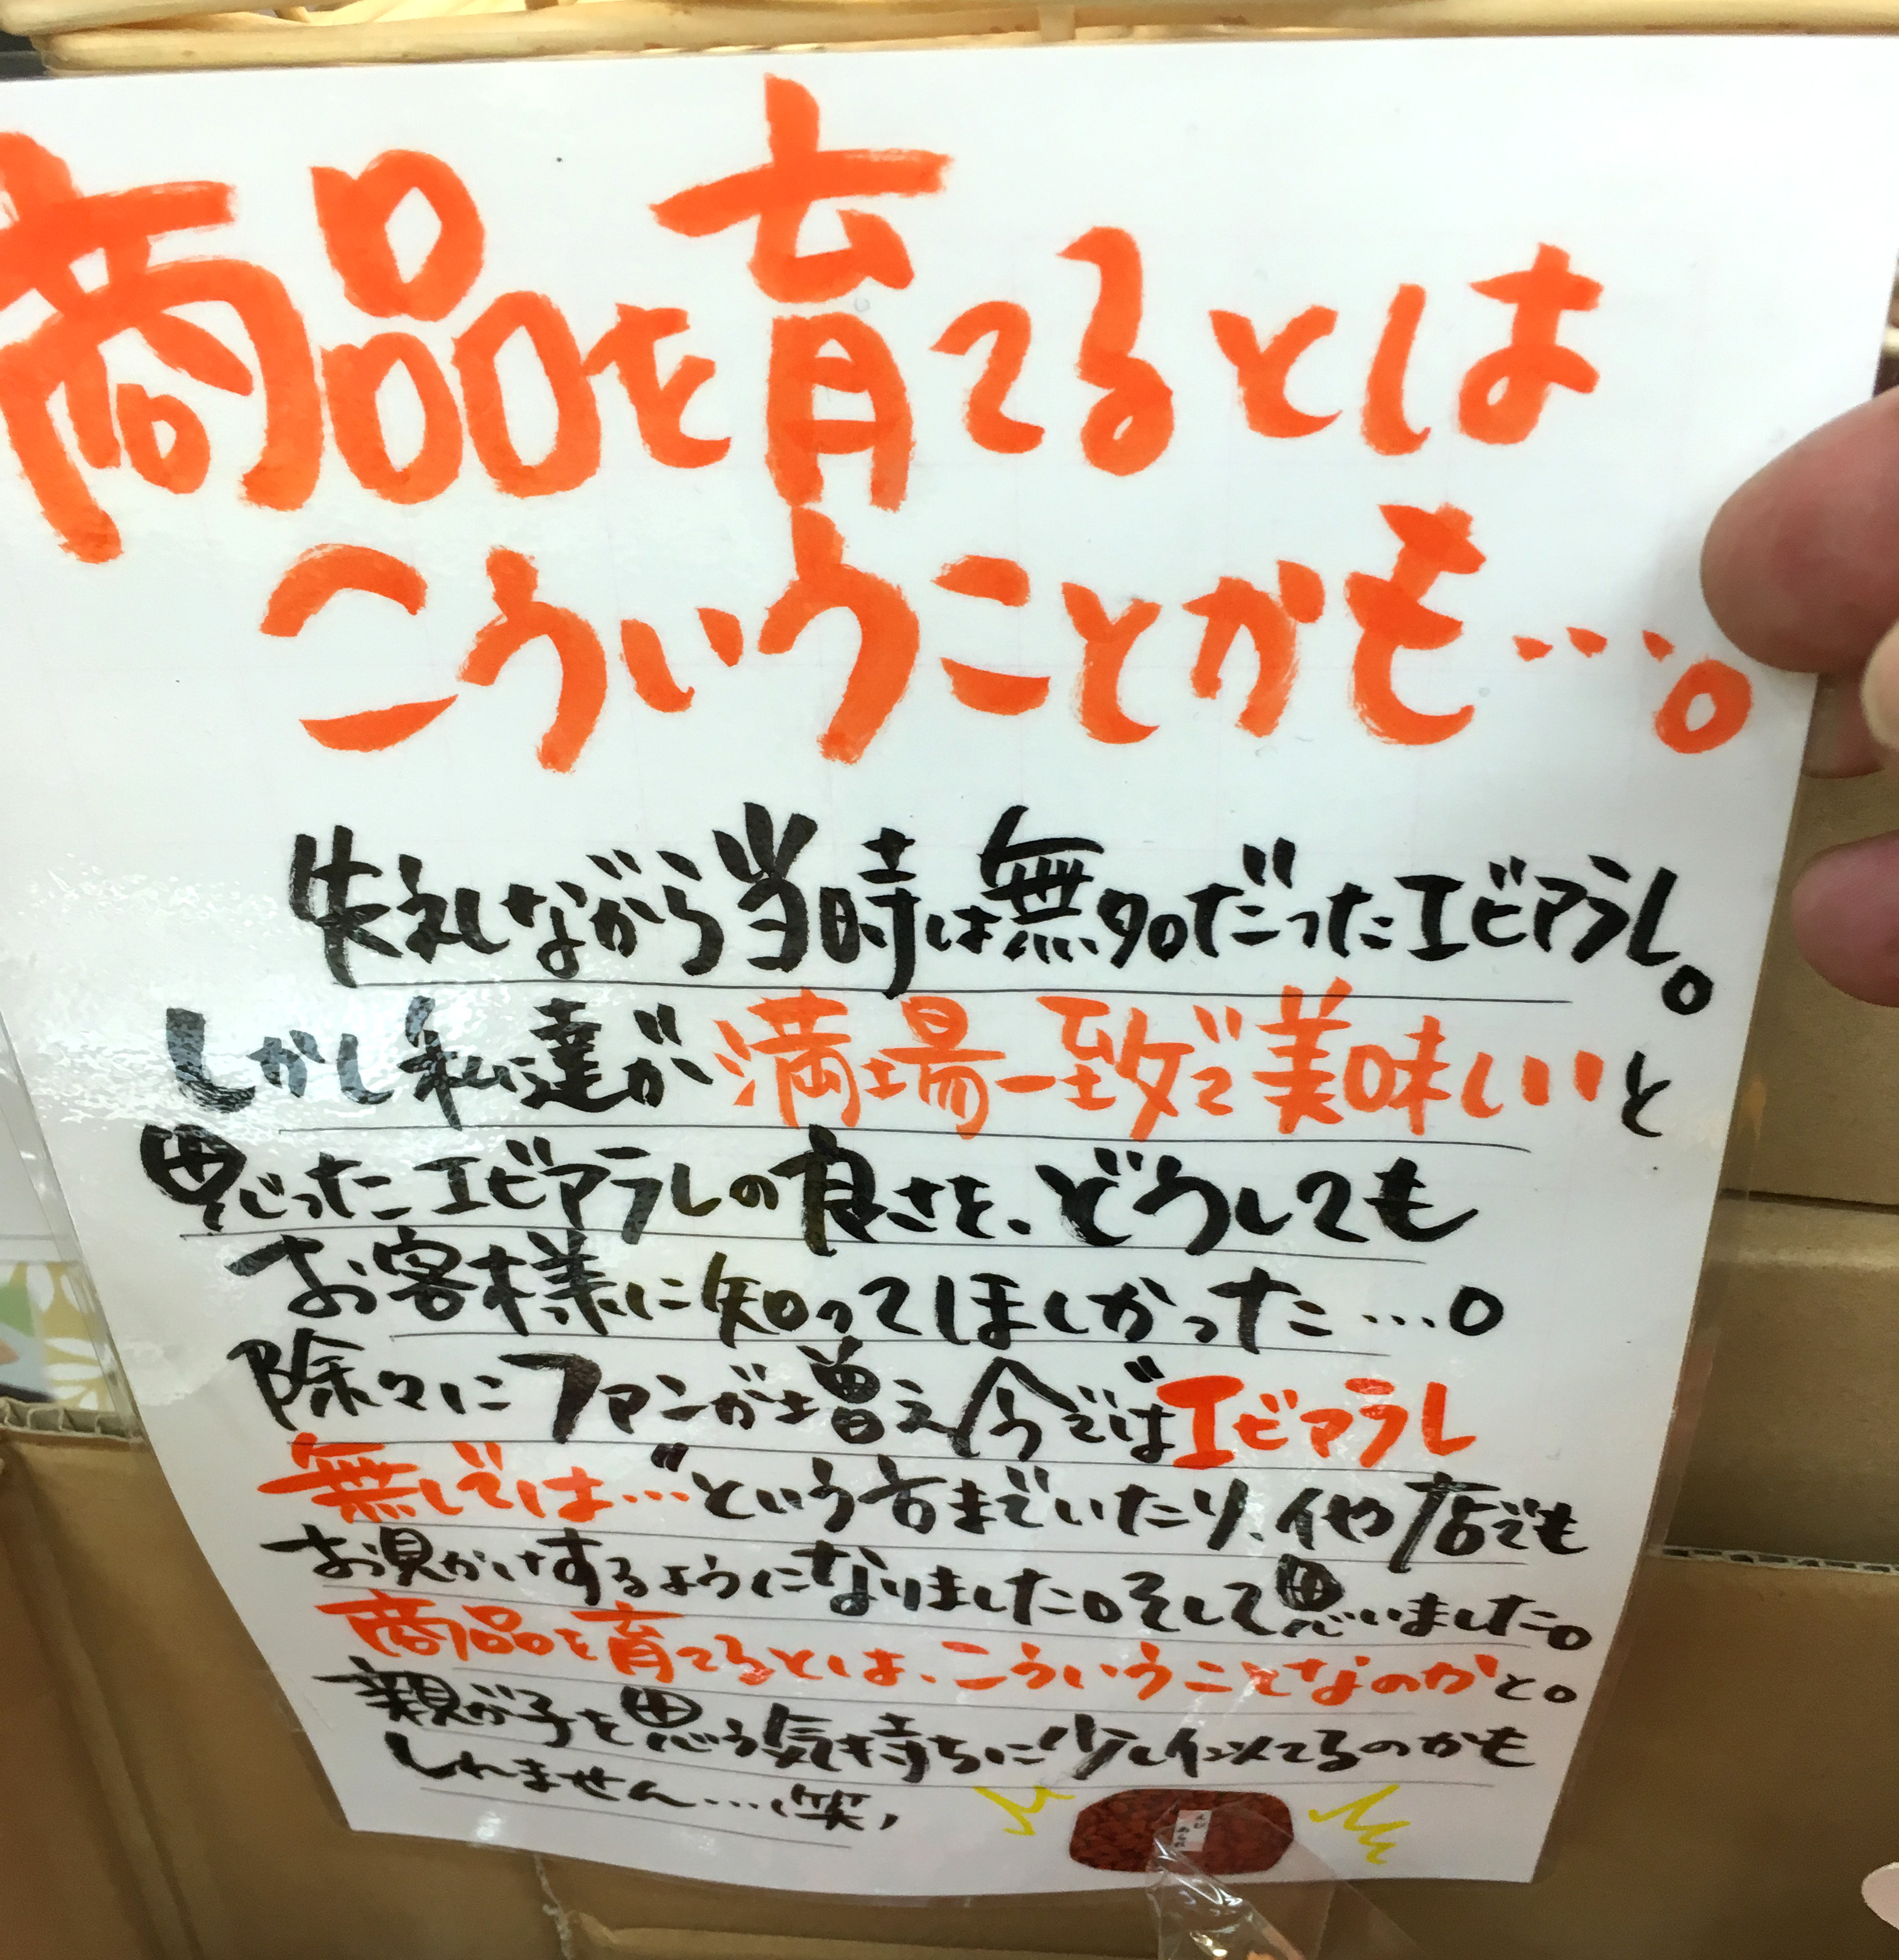 商品を育てるとは
こういうことかも…。
失礼しながら当時は無名だったエビアラレ。
しかし私達が満場一致で美味しいと
思じったエビアラレの良さを、どうしても
お客様に知ってほしかった…。
除々にファンが増え今ではエビアラレ
無しでは…〃という方までいたり、他店でも
お見かけするようになりました。そして思いました。
商品を育てるとは、こういうことなのかと。
親が子を思う気持ちに少し似てるのかも
しれません…(笑)